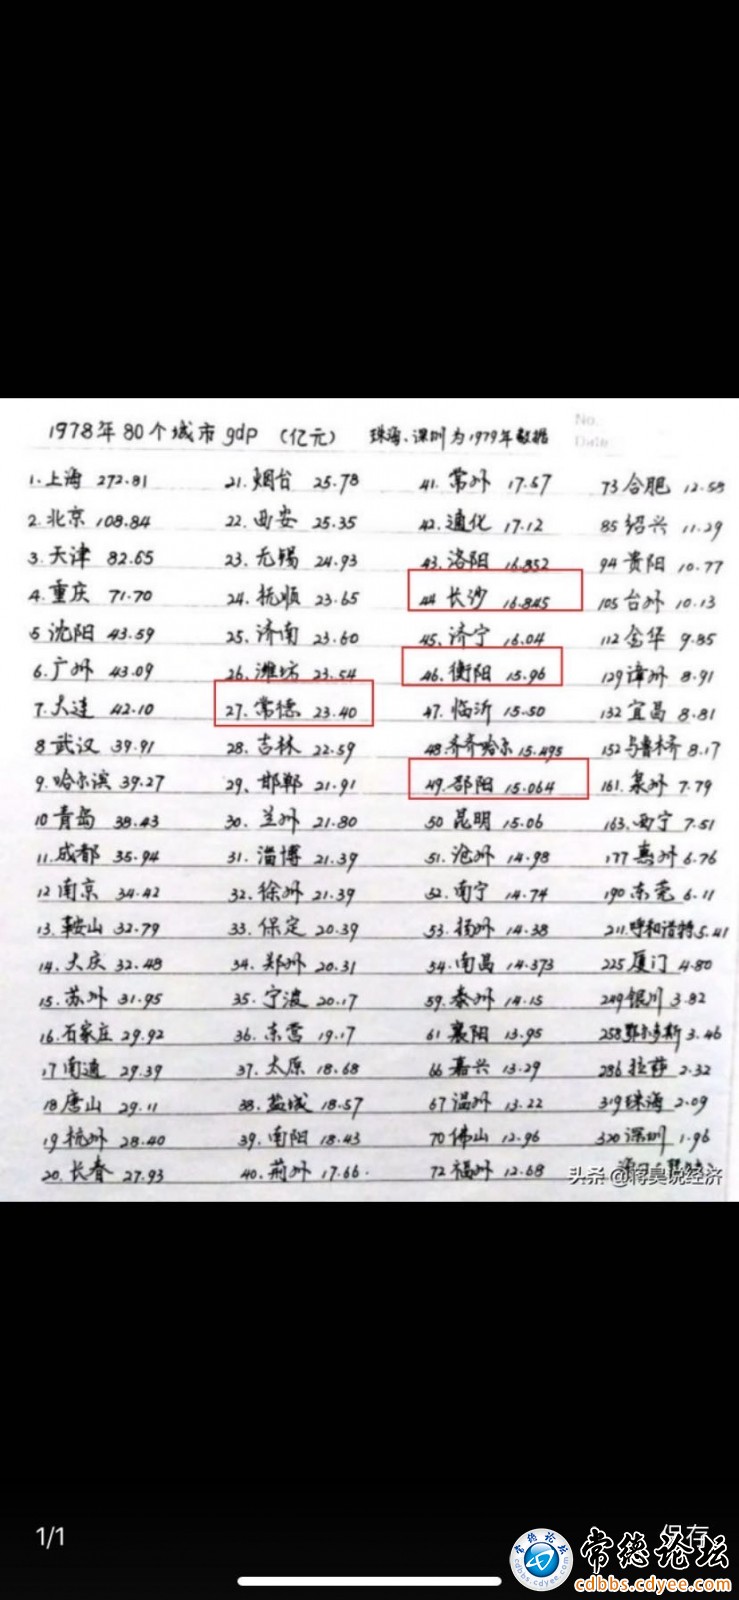 1978年80个城市gdp （亿元） 珠海、深圳为1979年数据
No.
Date
1.上海 272.81
2.北京 108.84
3.天津 82.65
4.重庆 71.70
5 沈阳 43.59
6.广州 43.09
7.大连 42.10
8 武汉 39.91
9.哈尔滨 39.27
10 青岛 38.43
11.成都 35.94
12 南京 34.42
13.鞍山 32.79
14.大庆 32.48
15.苏州 31.95
16.石家庄 29.92
17 南通 29.39
18 唐山 29.11
19 杭州 28.40
20.长春 27.93
21.烟台 25.78
22.西安 25.35
23.无锡 24.93
24.抚顺 23.65
25.济南 23.60
26.潍坊 23.54
27.常德 23.40
28.吉林 22.59
29、邯郸 21.91
30.兰州 21.80
31.淄博 21.39
32.徐州 21.39
33.保定 20.39
34.郑州 20.31
35.宁波 20.17
36.东营 19.17
37.太原 18.68
38.盐城 18.57
39.南阳 18.43
40.荆州 17.66.
41.常州 17.57
42.通化 17.12
43.洛阳 16.852
44 长沙 16.845
45.济宁 16.04
46.衡阳 15.96
47.临沂 15.50
48.齐齐哈尔 15.495
49.邵阳 15.064
50 昆明 15.06
51.沧州 14.98
52.南宁 14.74
53.扬州 14.38
54.南昌 14.373
59.泰州 14.15
61 襄阳 13.95
66 嘉兴 13.29
67 温州 13.22
70 佛山 12.96
72 福州 12.68
73 合肥 12.58
85 绍兴 11.29
94 贵阳 10.77
105 台州 10.13
112 金华 9.85
129 漳州 8.91
132 宜昌 8.81
152 乌鲁木齐 8.17
161.泉州 7.79
163.西宁 7.51
177 惠州 6.76
190 东莞 6.11
211.呼和浩特 5.41
225 厦门 4.80
249 银川 3.82
258 鄂尔多斯 3.46
286 拉萨 2.32
319 珠海 2.09
320 深圳 1.96
头条 @蒋昊说经济
1/1
保存
常德论坛
cdbbs.cdyee.com